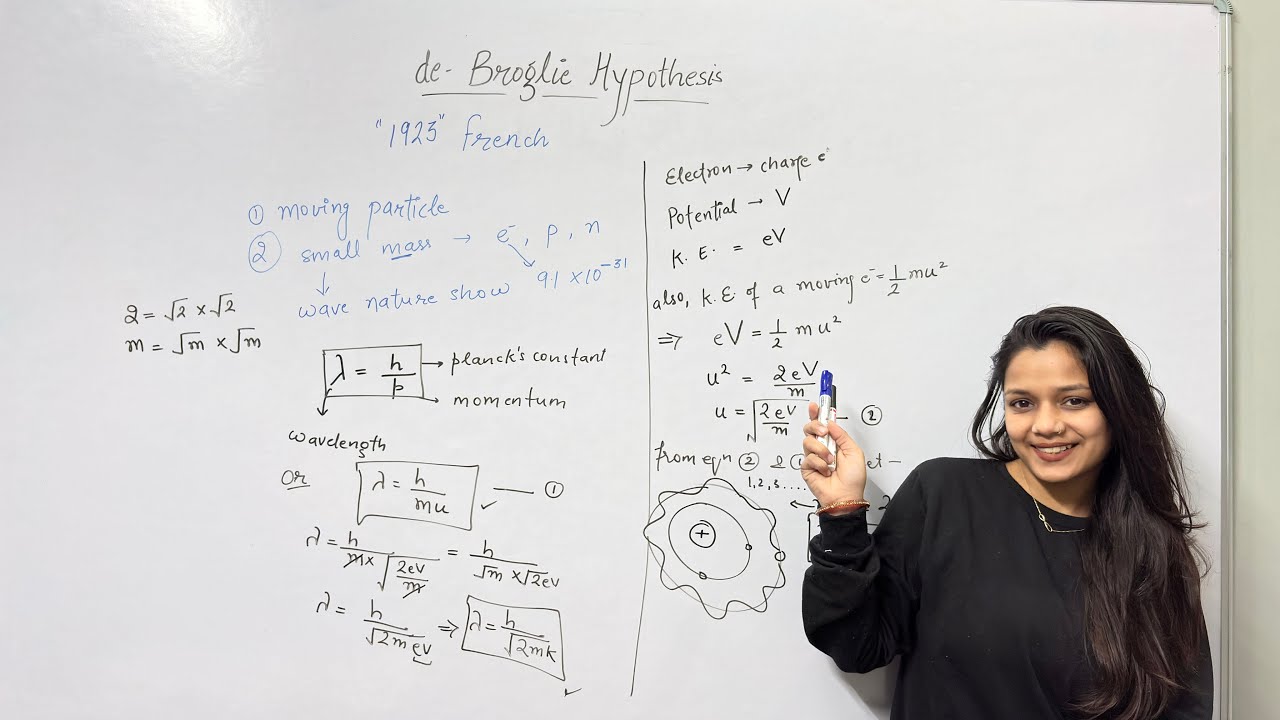 de-Broglie Hypothesis
"1923" french
① moving particle
② small mass → e⁻, p, n
9.1 × 10⁻³¹
↓
wave nature show
2 = √2 × √2
m = √m × √m
λ = h/p
→ planck's constant
→ momentum
wavelength
or
λ = h/mu ✓ — ①
λ = h/(m × √(2ev/m)) = h/(√m × √2ev)
λ = h/√2mev ⇒ λ = h/√2mk ✓
Electron → charge e⁻
Potential → V
K.E. = eV
also, K.E of a moving e⁻ = 1/2 mu²
⇒ eV = 1/2 mu²
u² = 2eV/m
u = √(2eV/m) — ②
from eqn ② &
1,2,3....
+
2